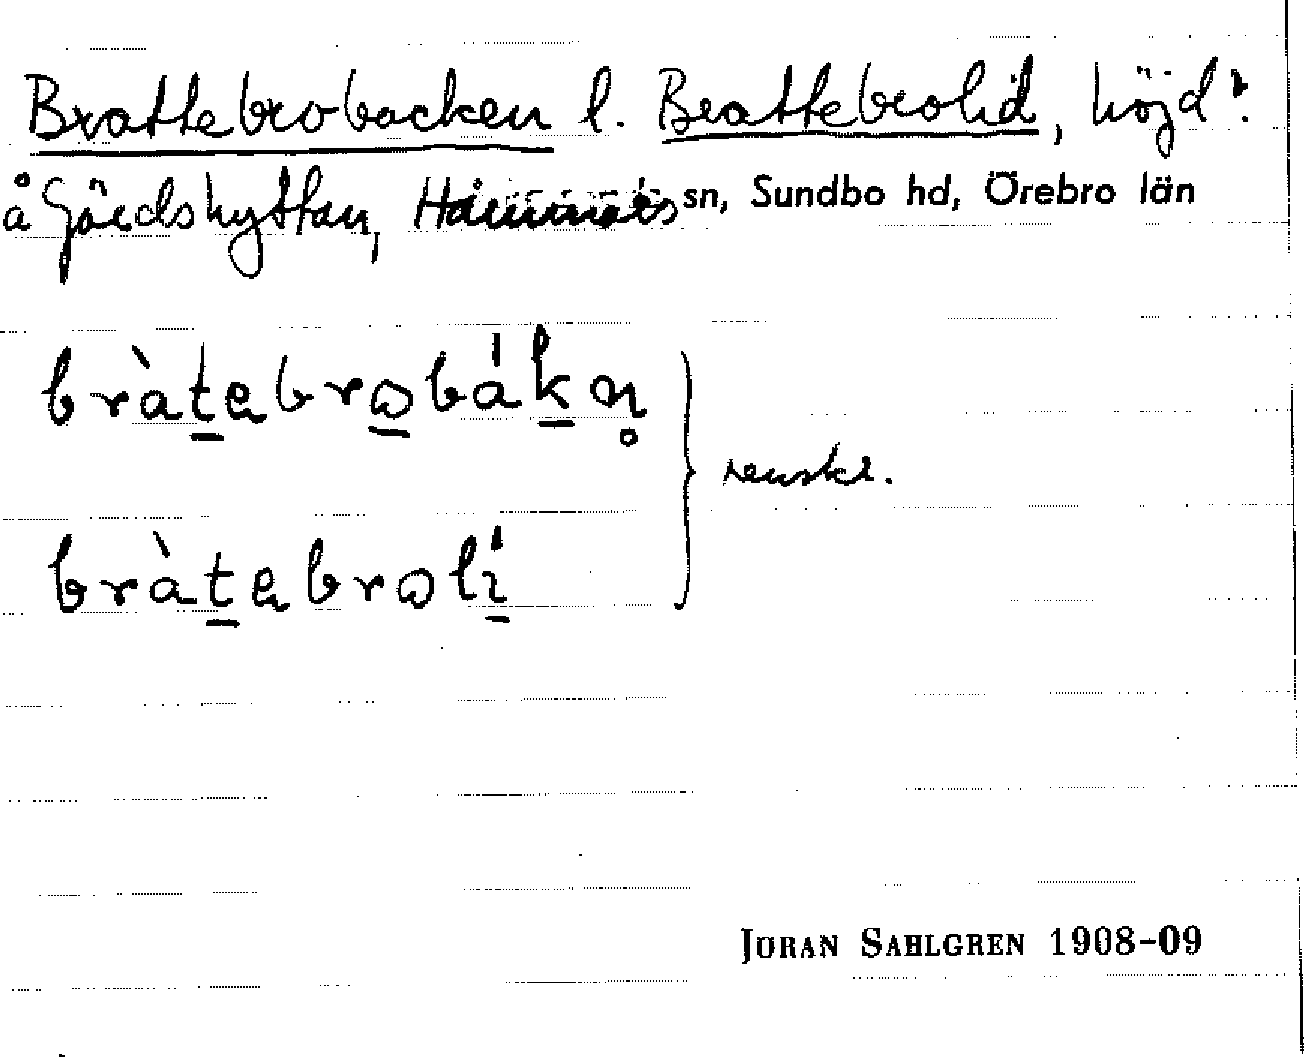 Brattebrobacken l. Brattebrolid, höjd.
å Gårdshyttan, Hammars sn, Sundbo hd, Örebro län
bràtebrobákn̥
renskr.
bràtebrolí
JÖRAN SAHLGREN 1908-09